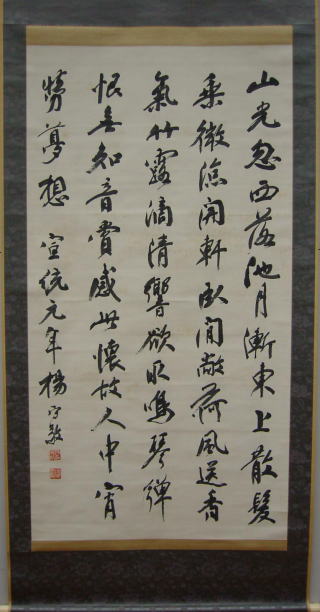 山光忽西落池月漸東上散髮
乘微涼開軒臥閒敞荷風送香
氣竹露滴清響欲取鳴琴彈
恨無知音賞感此懷故人中宵
勞夢想 宣統元年楊守敬